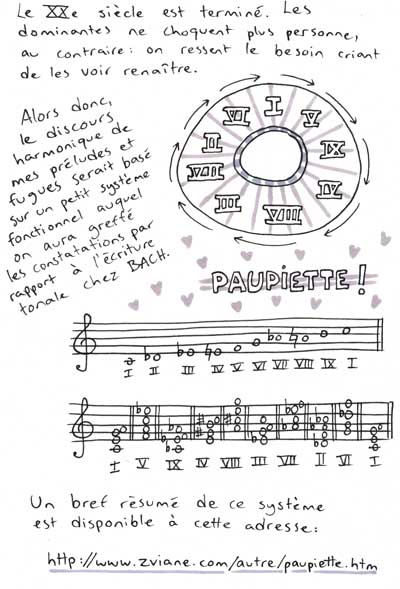 Le XXe siècle est terminé. Les
dominantes ne choquent plus personne,
au contraire: on ressent le besoin criant
de les voir renaître.
Alors donc,
le discours
harmonique de
mes préludes et
fugues serait basé
sur un petit système
fonctionnel auquel
on aura greffé
les constatations par
rapport à l'écriture
tonale chez BACH.
I
V
IX
IV
VIII
III
VII
II
VI
PAUPIETTE!
I II III IV V VI VII VIII IX I
I V IX IV VIII III VII II VI I
Un bref résumé de ce système
est disponible à cette adresse:
http://www.zviane.com/autre/paupiette.htm